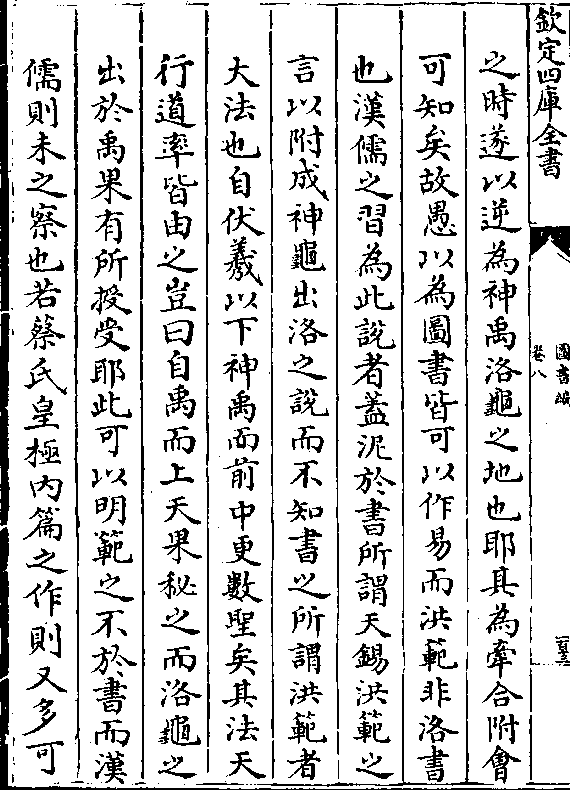 欽定四庫全書
圖書編
卷八
之時遂以逆為神禹洛龜之地也耶其為牽合附會
可知矣故愚以為圖書皆可以作易而洪範非洛書
也漢儒之習為此說者蓋泥於書所謂天錫洪範之
言以附成神龜出洛之說而不知書之所謂洪範者
大法也自伏羲以下神禹而前中更數聖矣其法天
行道率皆由之豈曰自禹而上天果秘之而洛龜之
出於禹果有所授受耶此可以明範之不於書而漢
儒則未之察也若蔡氏皇極内篇之作則又多可